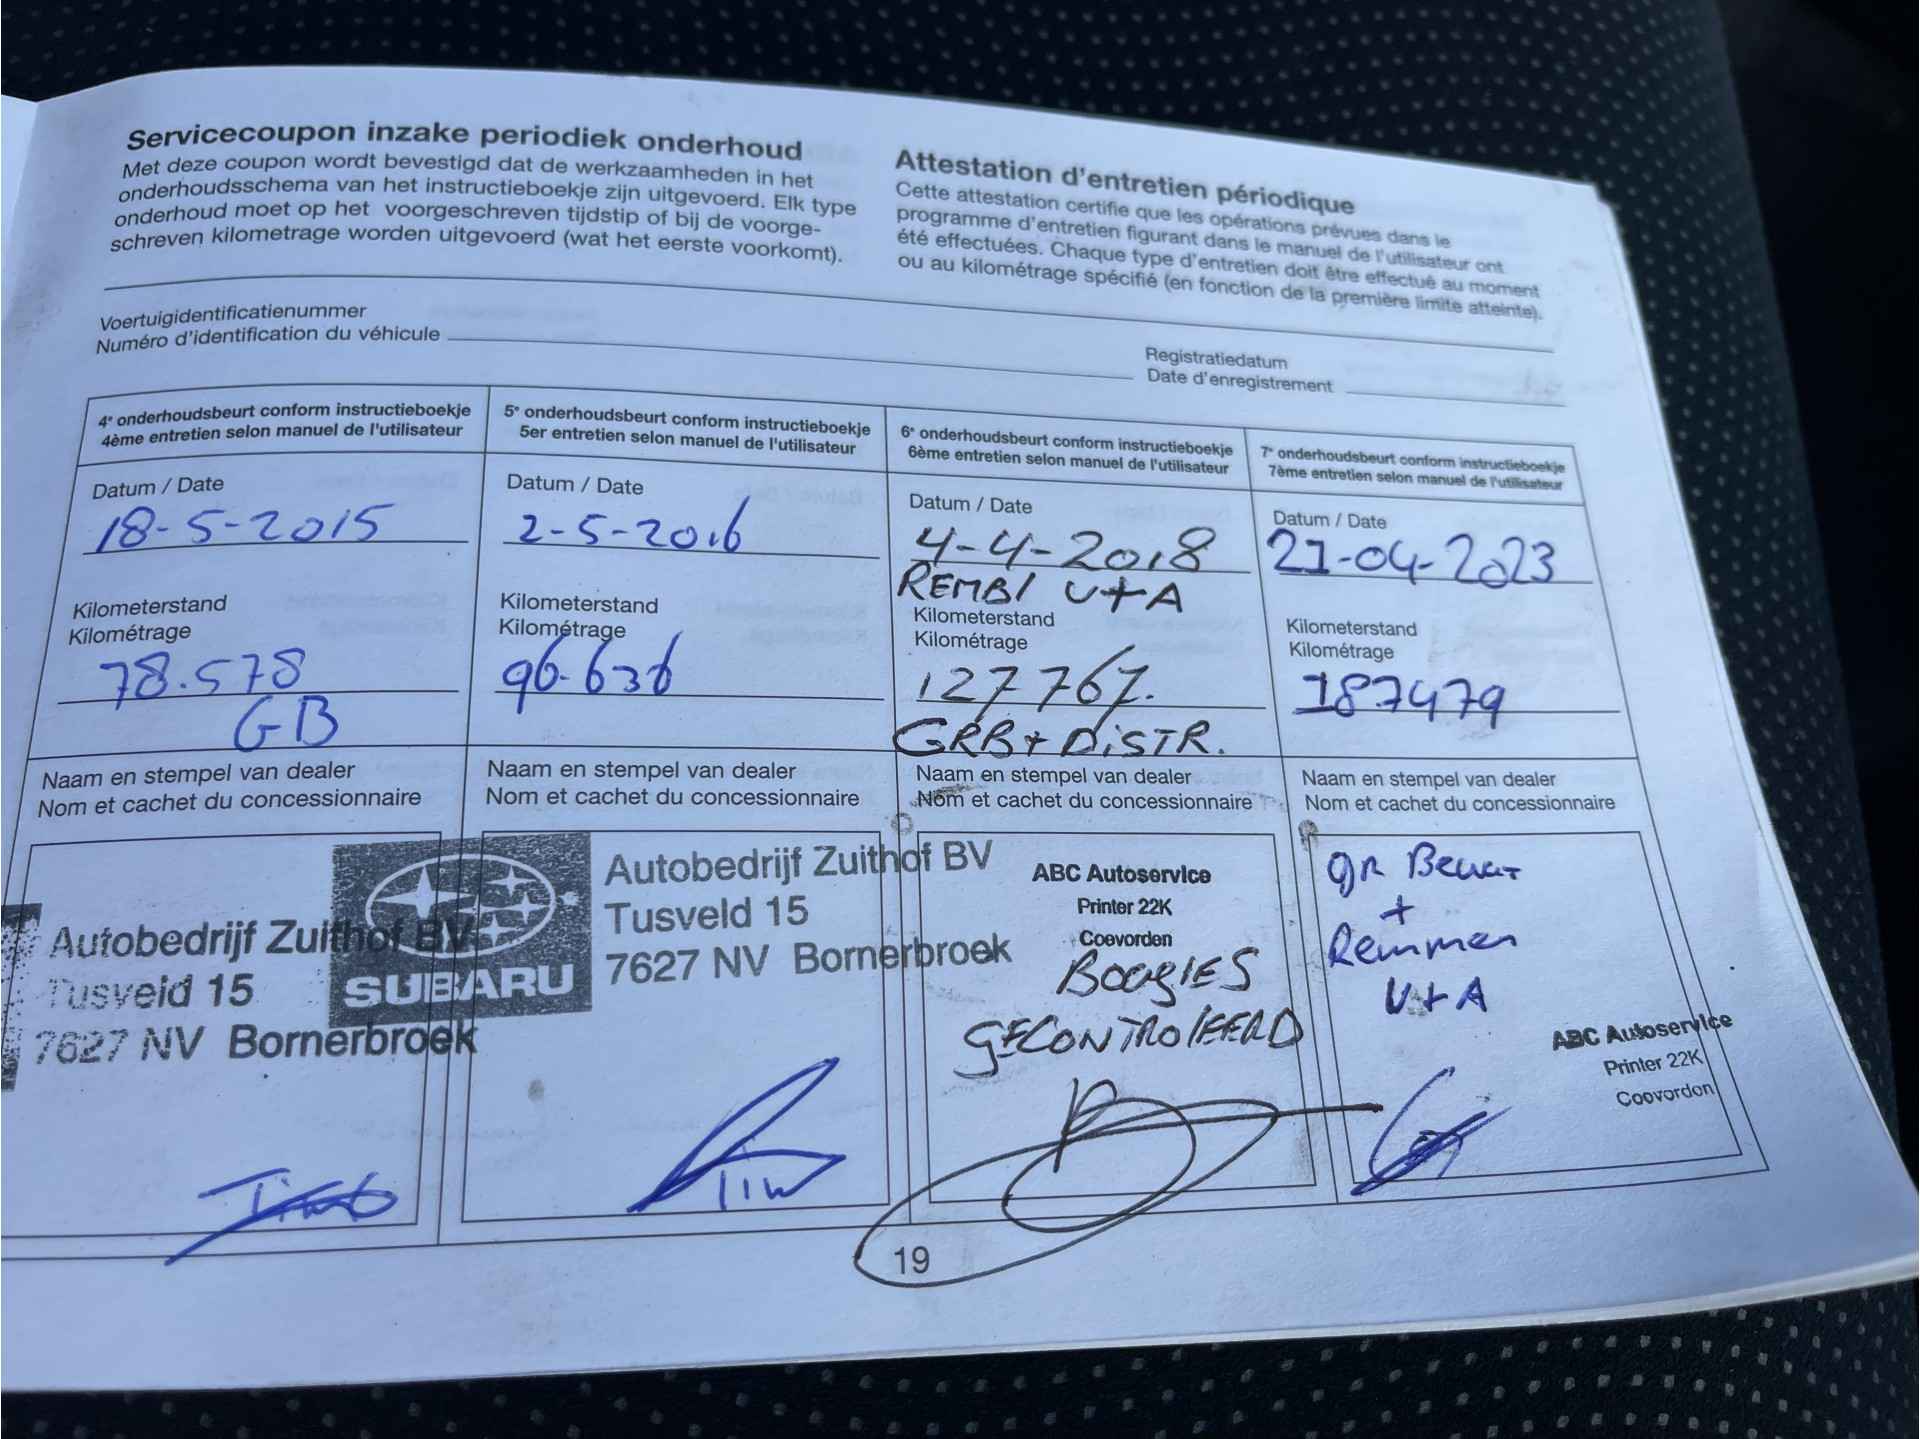 Servicecoupon inzake periodiek onderhoud
Met deze coupon wordt bevestigd dat de werkzaamheden in het
onderhoudsschema van het instructieboekje zijn uitgevoerd. Elk type
onderhoud moet op het voorgeschreven tijdstip of bij de voorge-
schreven kilometrage worden uitgevoerd (wat het eerste voorkomt).
Attestation d'entretien périodique
Cette attestation certifie que les opérations prévues dans le
programme d'entretien figurant dans le manuel de l'utilisateur ont
été effectuées. Chaque type d'entretien doit être effectué au moment
ou au kilométrage spécifié (en fonction de la première limite atteinte).
Voertuigidentificatienummer
Numéro d'identification du véhicule
Registratiedatum
Date d'enregistrement
4e onderhoudsbeurt conform instructieboekje
4ème entretien selon manuel de l'utilisateur
Datum / Date
18-5-2015
Kilometerstand
Kilométrage
78.578
GB
Naam en stempel van dealer
Nom et cachet du concessionnaire
Autobedrijf Zuithof BV
Tusveld 15
7627 NV Bornerbroek
5e onderhoudsbeurt conform instructieboekje
5er entretien selon manuel de l'utilisateur
Datum / Date
2-5-2016
Kilometerstand
Kilométrage
96.636
Naam en stempel van dealer
Nom et cachet du concessionnaire
SUBARU
Autobedrijf Zuithof BV
Tusveld 15
7627 NV Bornerbroek
Tim
6e onderhoudsbeurt conform instructieboekje
6ème entretien selon manuel de l'utilisateur
Datum / Date
4-4-2018
REMBl V+A
Kilometerstand
Kilométrage
127767.
GRB+ DiSTR.
Naam en stempel van dealer
Nom et cachet du concessionnaire
ABC Autoservice
Printer 22K
Coevorden
BOOGIES
GECONTROlEERD
7e onderhoudsbeurt conform instructieboekje
7ème entretien selon manuel de l'utilisateur
Datum / Date
21-04-2023
Kilometerstand
Kilométrage
187479
Naam en stempel van dealer
Nom et cachet du concessionnaire
gR Beurt
+
Remmen
V+A
ABC Autoservice
Printer 22K
Coevorden
19